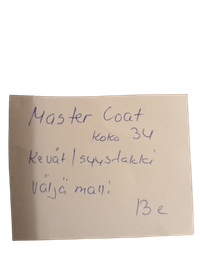 Master Coat
koko 34
Kevät/syystakki
Väljä malli
13 e